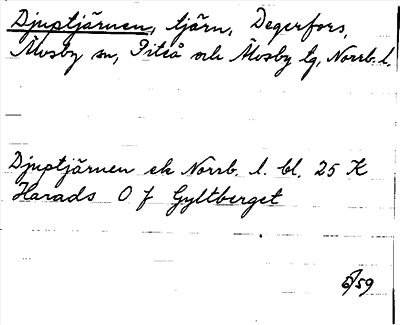 Djuptjärnen, tjärn, Degerfors,
Älvsby sn, Piteå och Älvsby tg, Norrb. l.
Djuptjärnen ek Norrb. l. bl. 25 K
Harads O f Gyltberget
6/59